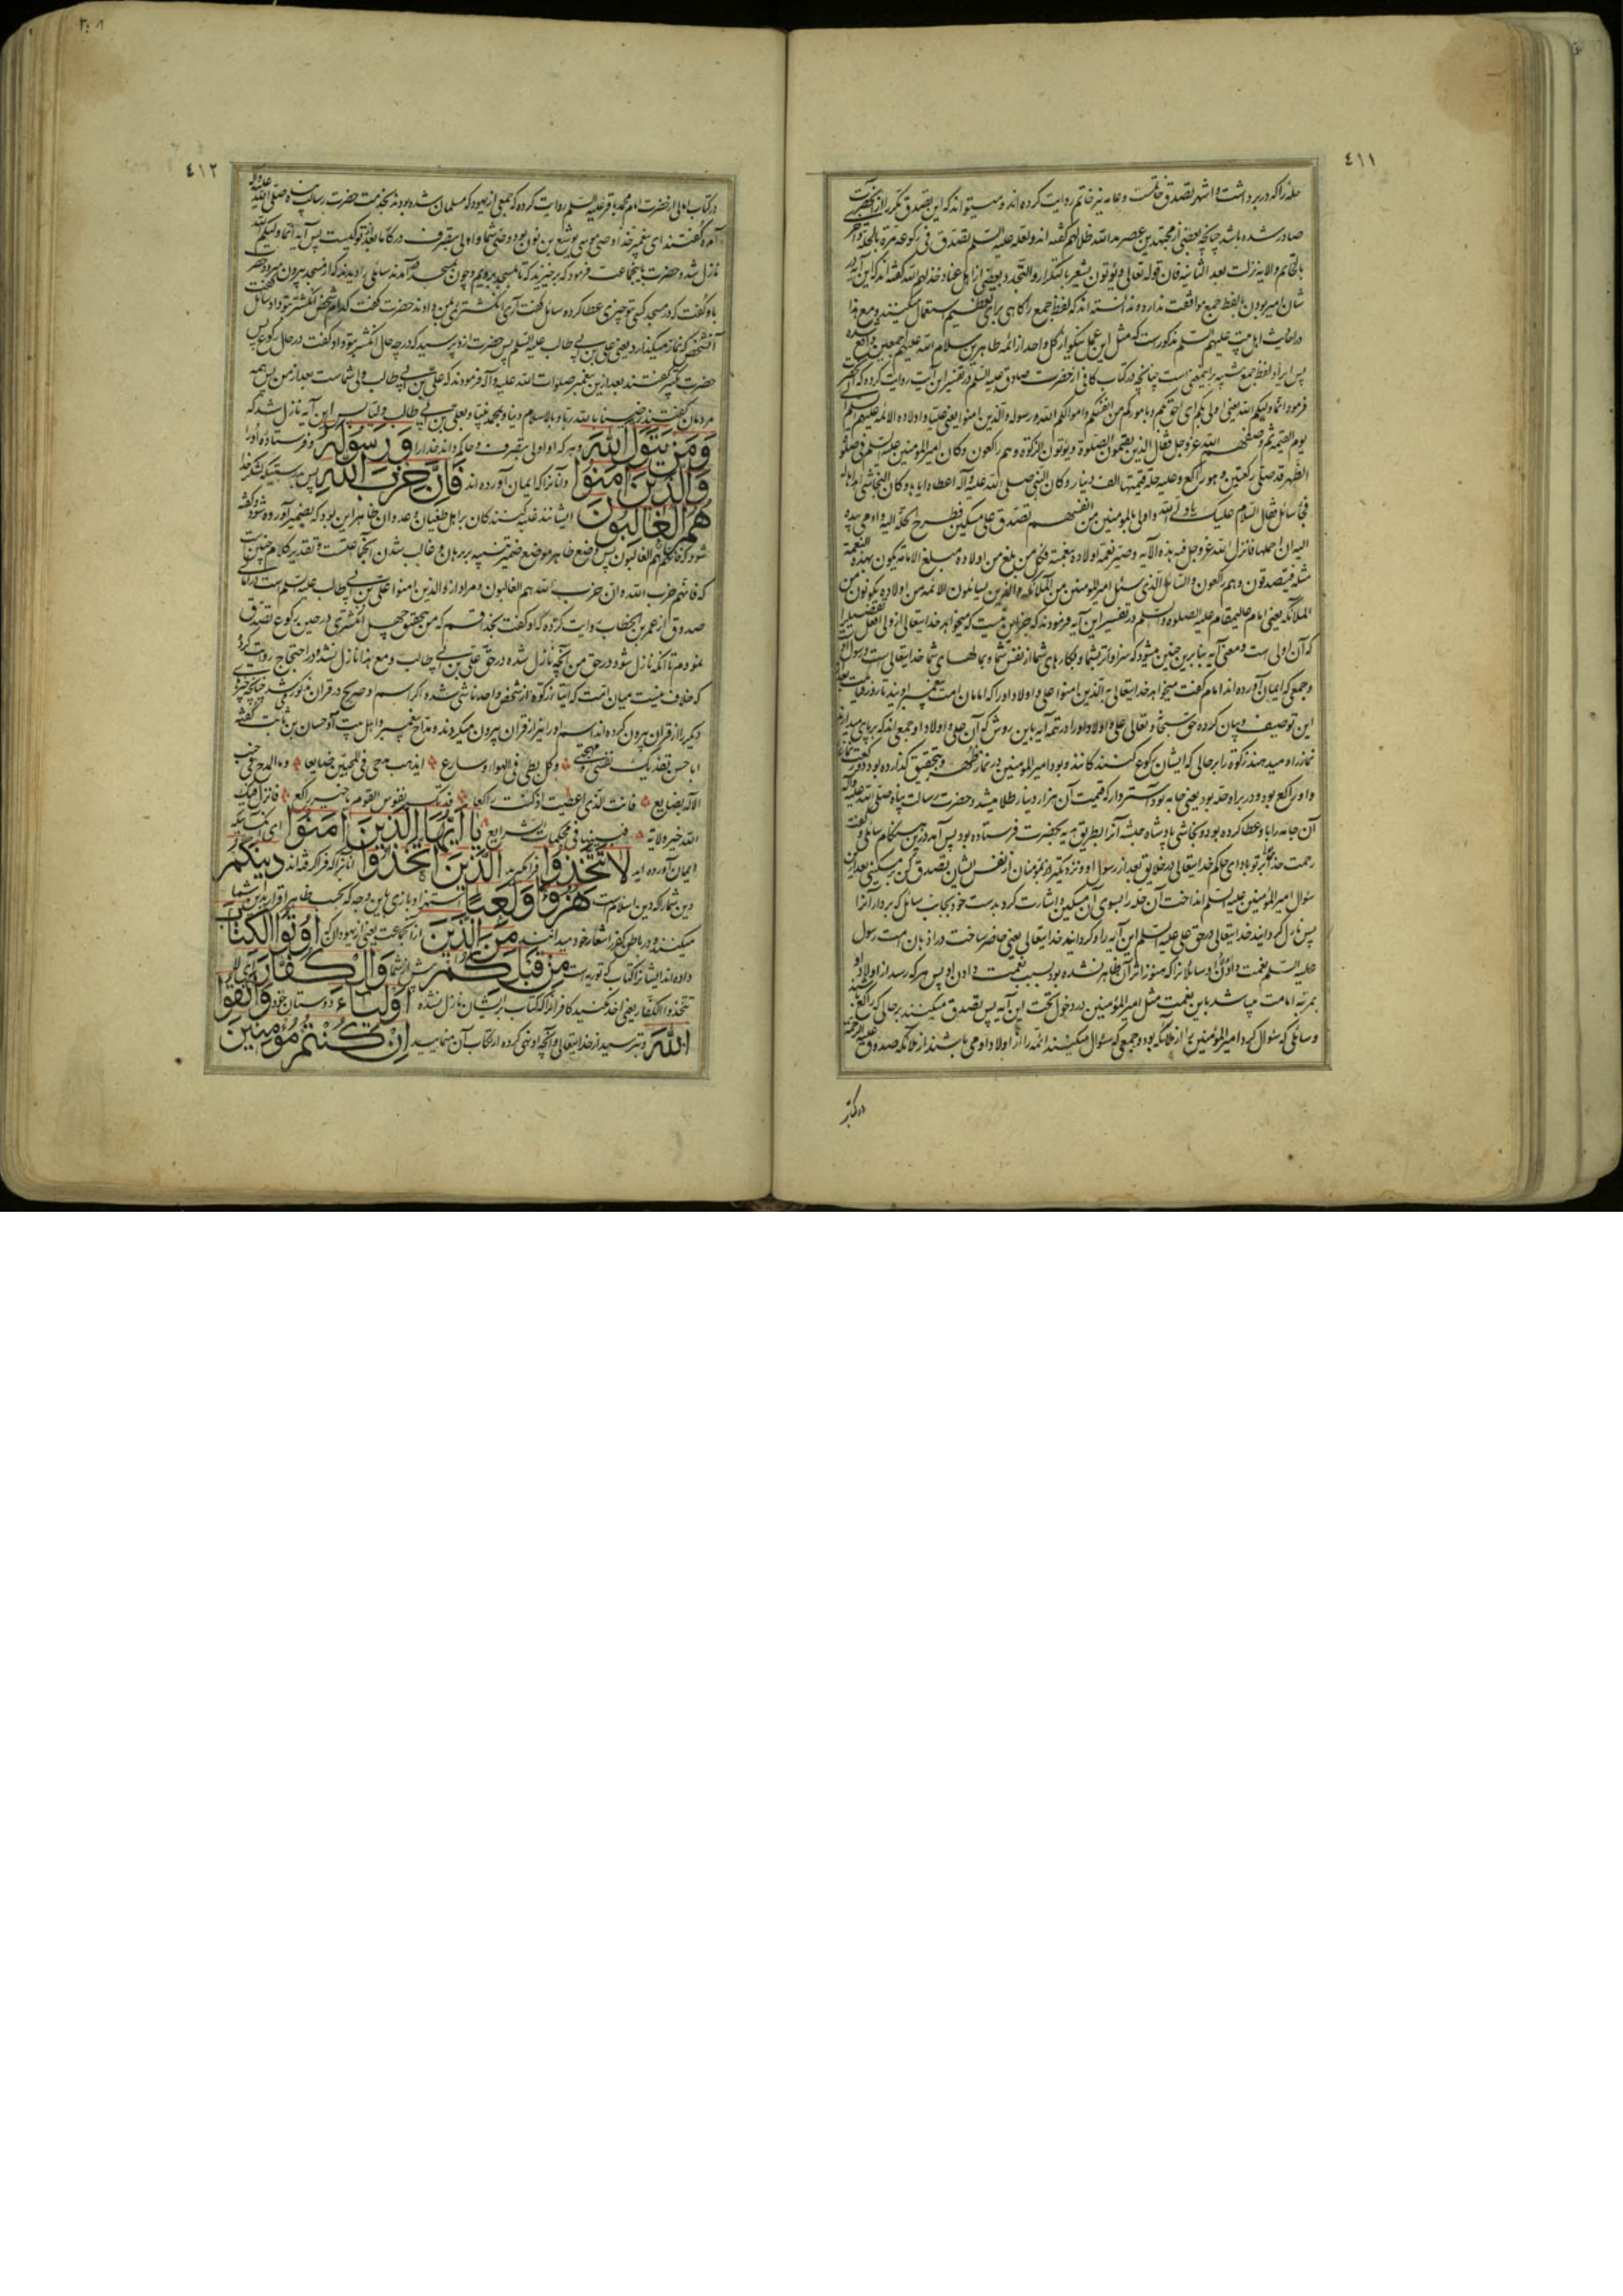 ٤١١
حله را که در بر داشت و اشهر تصدق خاتمست و عامه نیز خاتم روایت کرده‌اند و میتواند که این تصدق مکرر از آنحضرت
صادر شده باشد چنانچه بعضی از مجتهدین عصر مد الله ظلالهم گفته‌اند و لعله علیه السلم تصدق فی رکوعه مرة بالحلة و اخری
بالخاتم و الایه نزلت بعد الثانیه فان قوله تعالی و یؤتون یشعر بالتکرار و التجدد و بعضی از اهل عناد خذلهم الله گفته‌اند که این آیه در
شان امیر بودن با لفظ جمع موافقت ندارد و ندانسته‌اند که لفظ جمع را گاهی برای تعظیم استعمال میکنند و مع هذا
در احادیث اهل بیت علیهم السلم مذکور ست که مثل این عمل نیکو از کل واحد از ائمه طاهرین سلام الله علیهم اجمعین واقع شده
پس ایراد لفظ جمع باینمعنی است چنانچه در کتاب کافی از حضرت صادق علیه السلم در تفسیر این آیت روایت کرده که آنحضرت
فرمود انما ولیکم الله یعنی اولی بکم ای احق بکم و بامورکم من انفسکم و اموالکم الله و رسوله و الذین امنوا یعنی علیا و اولاده الائمه علیهم السلم
یوم القیمه ثم وصفهم الله عز و جل فقال الذین یقیمون الصلوة و یؤتون الزکوة و هم راکعون و کان امیر المؤمنین علیه السلم فی صلوة
الظهر قد صلی رکعتین و هو راکع و علیه حلة قیمتها الف دینار و کان النبی صلی الله علیه و آله اعطاه ایاها و کان النجاشی اهداها له
فجا سائل فقال السلام علیک یا ولی الله و اولی بالمؤمنین من انفسهم تصدق علی مسکین فطرح الحلة الیه و اومی بیده
الیه ان احملها فانزل الله عز و جل فیه هذه الآیه و صیر نعمة اولاده بنعمته فکل من بلغ من اولاده مبلغ الامامة یکون بهذه النعمة
مثله فیتصدقون و هم راکعون و السائل الذی سئل امیر المؤمنین من الملائکة و الذین یسائلون الائمه من اولاده یکونون من
الملائکة یعنی امام علیه الصلوة و السلم در تفسیر این آیه فرمودند که جز این نیست که میخواهد خدایتعالی از ولی افعل تفضیل را
که آن اولی ست و معنی آیه بنابرین چنین میشود که سزاوارتر بشما و بکارهای شما از نفس شما و بمالهای شما خدایتعالی ست و رسول او
و جمعی که ایمان آورده‌اند امام گفت میخواهد خدایتعالی به الذین امنوا علی و اولاد او را که امامان امت پیغمبر اویند تا روز قیامت بعد
این توصیف و بیان کرده حق سبحانه و تعالی علی و اولاد او را در تتمه آیه باین روش که آن علی و اولاد او جمعی‌اند که برپای میدارند
نماز را و میدهند زکوة را بر حالی که ایشان رکوع کنندگانند و بود امیر المؤمنین در نماز ظهر و بتحقیق گذارده بود دو رکعت نماز
و او راکع بود و در بر او حله بود یعنی جامه بود آستر دار که قیمت آن هزار دینار طلا میشد و حضرت رسالت پناه صلی الله علیه و آله
آن جامه را باو عطا کرده بود و نجاشی پادشاه حبشه آنرا بطریق هدیه بحضرت فرستاده بود پس آمد در این هنگام سائلی و گفت
رحمت خدا بر تو باد ای حاکم خدایتعالی در خلایق بعد از رسول او و نزدیکتر از مؤمنان از نفس ایشان تصدق کن بر مسکینی بعد از این
سؤال امیر المؤمنین علیه السلم انداخت آن حله را بسوی آن مسکین و اشارت کرد بدست خود بجانب سائل که بردار آنرا
پس نازل گردانید خدایتعالی در حق علی علیه السلم این آیه را
علیه السلم
بمرتبه امامت میباشد باین نعمت مثل امیر المؤمنین در دخول تحت این آیه پس تصدق میکنند بر حالی که راکع
و سائلی که سئوال کرد امیر المؤمنین را از ملائکه بود و جمعی که سئوال میکنند ائمه را از اولاد او می باشند از ملائکه صدوق علیه الرحمة
در کتاب
٤١٢
در کتاب امالی از حضرت امام محمد باقر علیه السلم روایت کرده که جمعی از یهود که مسلمان شده بودند بخدمت حضرت رسالت پناه صلی الله علیه و آله
آمده گفتند ای پیغمبر خدا وصی موسی یوشع بن نون بود وصی شما و اولی بتصرف در کار ما بعد از تو کیست پس آیه انما ولیکم الله
نازل شد و حضرت باینجماعت فرمود که برخیزید که تا بمسجد برویم و چون بمسجد آمدند سائلی را دیدند که از مسجد بیرون میرود حضرت
باو گفت که در مسجد کسی بتو چیزی عطا کرده سائل گفت آری انگشتری بمن دادند حضرت گفت کدام شخص انگشتر بتو داد سائل گفت
آنشخص که نماز میگذارد یعنی علی بن ابی طالب علیه السلم پس حضرت از و پرسید که در چه حال انگشتر بتو داد گفت در حال رکوع پس
حضرت تکبیر گفتند بعد ازین پیغمبر صلوات الله علیه و آله فرمودند که علی بن ابی طالب ولی شماست بعد از من پس همه
مردمان گفتند رضینا بالله ربا و بالاسلام دینا و بمحمد نبیا و بعلی بن ابی طالب ولیا پس این آیه نازل شد که
وَمَنْ يَتَوَلَّ اللهَ و هر که اولی بتصرف و حاکم داند خدا را وَ رَسُولَهُ و فرستاده او را
وَالَّذِينَ امَنُوا و آنانرا که ایمان آورده‌اند فَاِنَّ حِزْبَ اللهِ پس بدرستیکه لشکر خدا
هُمُ الْغَالِبُونَ ایشانند غلبه کنندگان بر اهل طغیان و عدوان ظاهر این بود که بضمیر آورده شود و گفته
شود که فانهم هم الغالبون پس وضع ظاهر موضع ضمیر تنبیه بر برهان و غالب شدن آنجماعتست و تقدیر کلام چنین ست
که فانهم حزب الله و ان حزب الله هم الغالبون و مراد از و الذین امنوا علی بن ابی طالب علیه السلم ست در امالی
صدوق از عمر بن الخطاب روایت کرده که او گفت بخدا قسم که من بتحقیق چهل انگشتری در حین رکوع تصدق
نمودم تا آنکه نازل شود در حق من آنچه نازل شده در حق علی بن ابی طالب و مع هذا نازل نشد و در احتجاج روایت کرده
که خلاف نیست میان امت که ایتاء زکوة از شخص واحد ناشی شده اگر اسم او صریح در قران مذکور می شد چنانچه چیزهای
دیگر را از قران بیرون کرده‌اند اسم او را نیز از قران بیرون میکردند و مداح پیغمبر و اهل بیت او حسان بن ثابت گفته
ابا حسن تفدیک نفسی و مهجتی و کل بطی فی الهوا و سارع ایذهب مدحی فی المحبین ضایعا و ما المدح فی جنب
الاله بضایع فانت الذی اعطیت اذ کنت راکعا فدتک نفوس القوم یا خیر راکع فانزل فیک
الله خیر ولایة فبینها فی محکمات الشرایع يَا اَيُّهَا الَّذِينَ امَنُوا ای کسانیکه
ایمان آورده‌اید لَا تَتَّخِذُوا فرا مگیرید الَّذِينَ اتَّخَذُوا آنانرا که فرا گرفته‌اند دِينَكُمْ
دین شما را که دین اسلام ست هُزُوًا وَ لَعِبًا استهزا و بازی باین وجه که بحسب ظاهر اقرار بدین شما
میکنند و در باطن کفر را شعار خود میدانند مِنَ الَّذِينَ از آنجماعت یعنی از یهودان که اُوتُوا الْكِتَابَ
داده‌اند ایشانرا کتاب که توریه است مِنْ قَبْلِكُمْ پیش از شما وَالْكُفَّارَ ای لا
تتخذوا الکفار یعنی اخذ مکنید کافرانرا که کتاب بر ایشان نازل نشده اَوْلِيَاءَ دوستان خود وَاتَّقُوا
اللهَ و بترسید از خدایتعالی و آنچه او نهی کرده ارتکاب آن منمایید اِنْ كُنْتُمْ مُؤْمِنِينَ